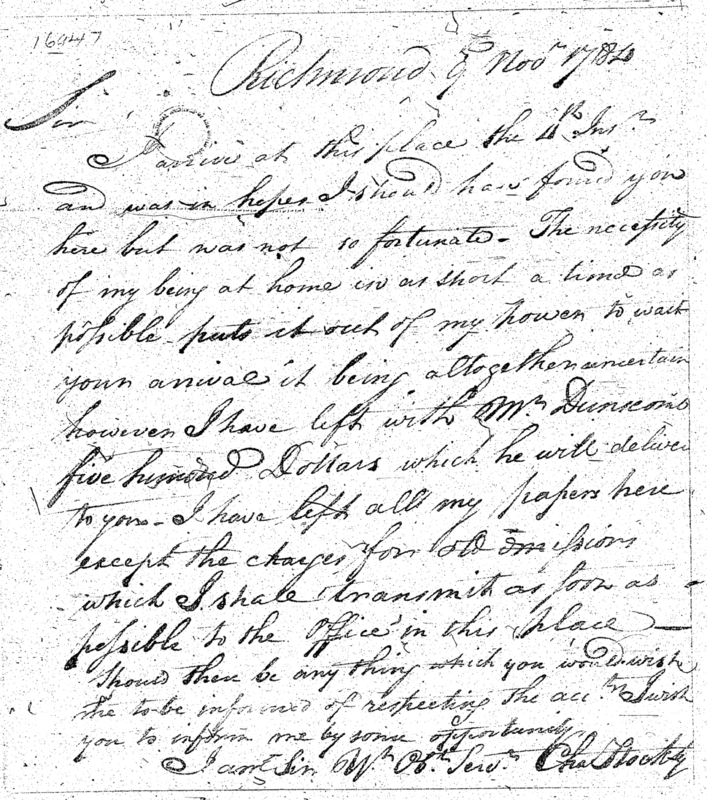 16947
Richmond 9th Novr 1784
Sir
I arrive at this place the 4th Inst
and was in hopes I should have found you
here but was not so fortunate - The necessity
of my being at home in as short a time as
possible puts it out of my power to wait
your arrival it being altogether uncertain
however I have left with Mr Dunscomb
five hundred Dollars which he will deliver
to you - I have left all my papers here
except the charges for old Emissions
which I shall transmit as soon as
possible to the Office in this place —
Should there be any thing which you would wish
me to be informed of respecting the acctn I wish
you to inform me by some opportunity
I am Sir Yr Obt Servt Cha